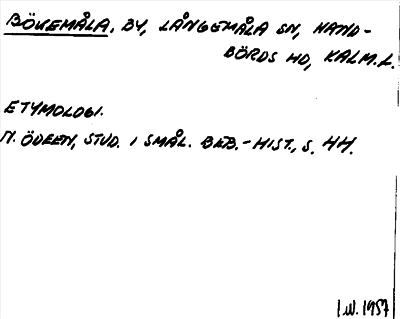 BÖKEMÅLA, BY, LÅNGEMÅLA SN, HAND-
BÖRDS HD, KALM.L.
ETYMOLOGI.
N. ÖDEEN, STUD. I SMÅL. BEB.-HIST., S. 44.
I.W. 1957